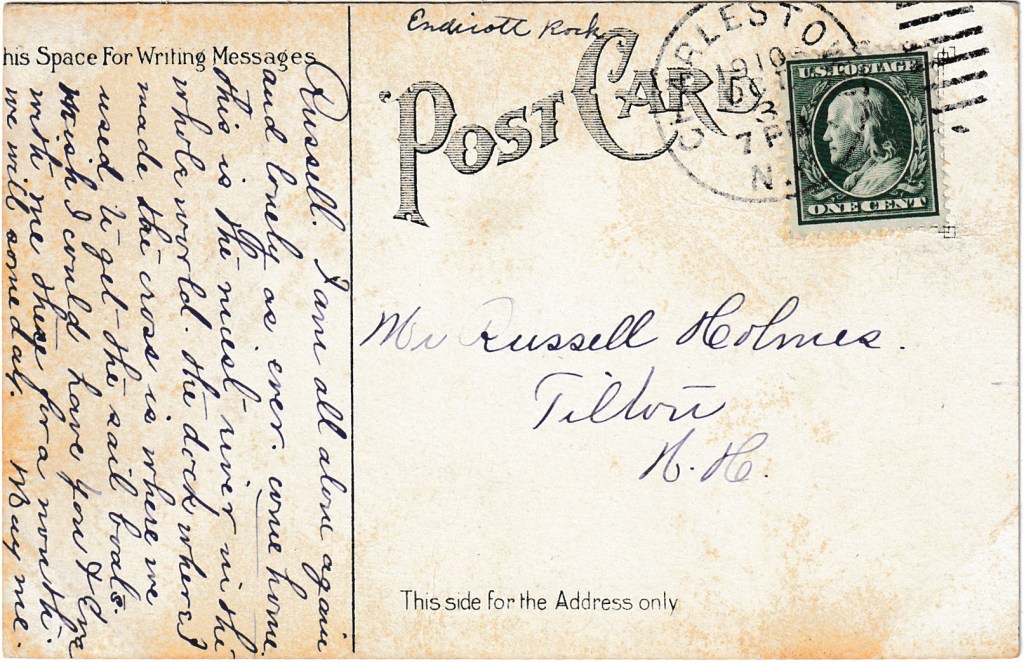 Endicott Rock
his Space For Writing Messages
POST CARD
CHARLESTO
1910
3
7 PM
N.
U.S. POSTAGE
ONE CENT
Russell. I am all alone again
and lonely as ever. come home.
this is the nicest river in the
whole world. the dock where I
made the cross is where we
used to get the sail boats.
Wish I could have you & Eva
with me these for a month.
we will someday. May me.
Mr Russell Holmes.
Tilton
N. H.
This side for the Address only